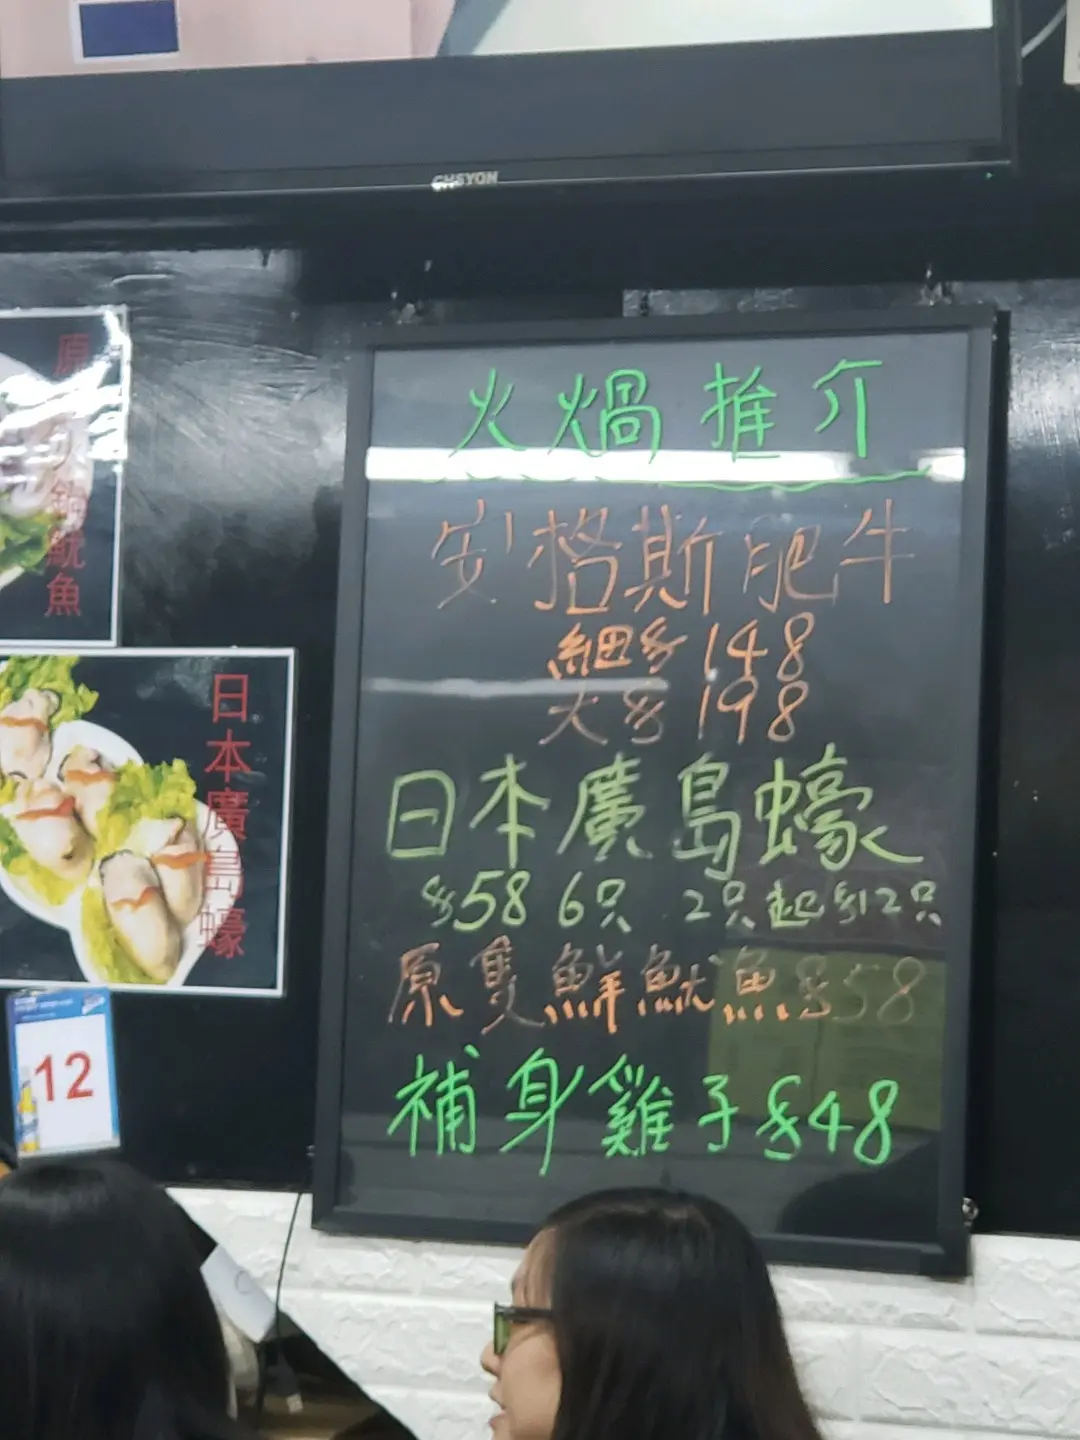 CHSYON
原
火鍋魷魚
日本廣島蠔
12
火煱推介
安格斯肥牛
細$148
大$198
日本廣島蠔
$58 6只 2只起$12只
原隻鮮魷魚$58
補身雞子$48